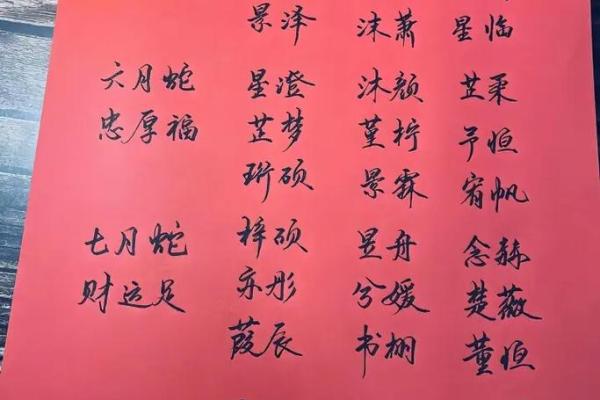 景泽 沐萧 星临
六月蛇 星澄 沐颜 芷秉
忠厚福 芷梦 堇柠 予恒
珩硕 景霖 宥帆
七月蛇 梓硕 昱舟 念赫
财运足 亦彤 兮媛 楚薇
葭辰 书栩 董恒